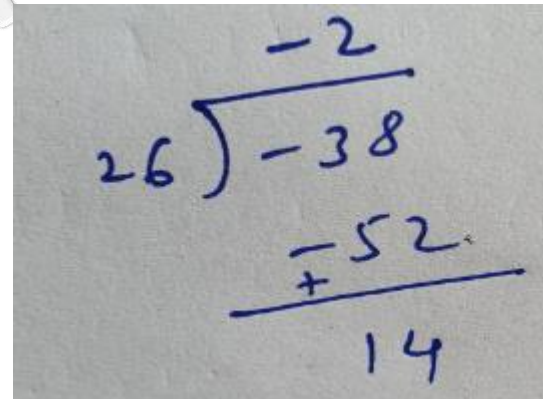 -2
26)-38
-52
+
14